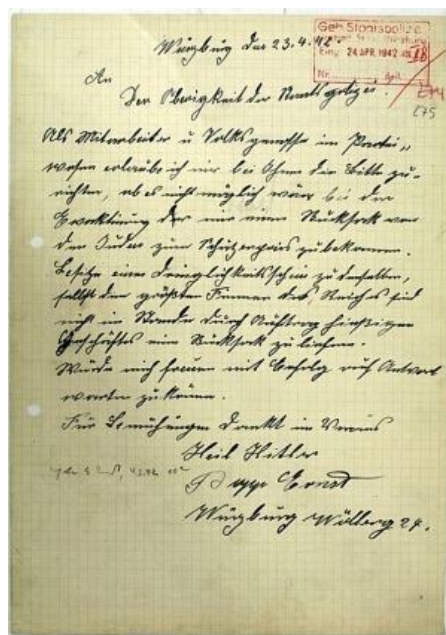 Geh. Staatspolizei
Eing. 24. APR. 1942
Nr.
Würzburg den 23.4.42.
An
Der Oberigkeit der Staatspolizei!
Als Mitarbeiter u Volksgenosse im Partei„
wesen erlaube ich mir bei Ihnen die Bitte zu-
richten, ob es nicht möglich wär bei der
Evakuierung der mir einen Rucksack von
den Juden zum Schätzenpreis zubekommen.
Besitze einen Dringlichkeitsschein zu denselben,
selbst den größten Firmen des Reiches sind
nicht im Stande durch Auftrag hiesigen
Geschäftes ein Rucksack zu liefern.
Würde mich freuen mit Erfolg auf Antwort
warten zu können.
Für Bemühungen Dankt im Voraus
Heil Hitler
Ernst
Würzburg 24.